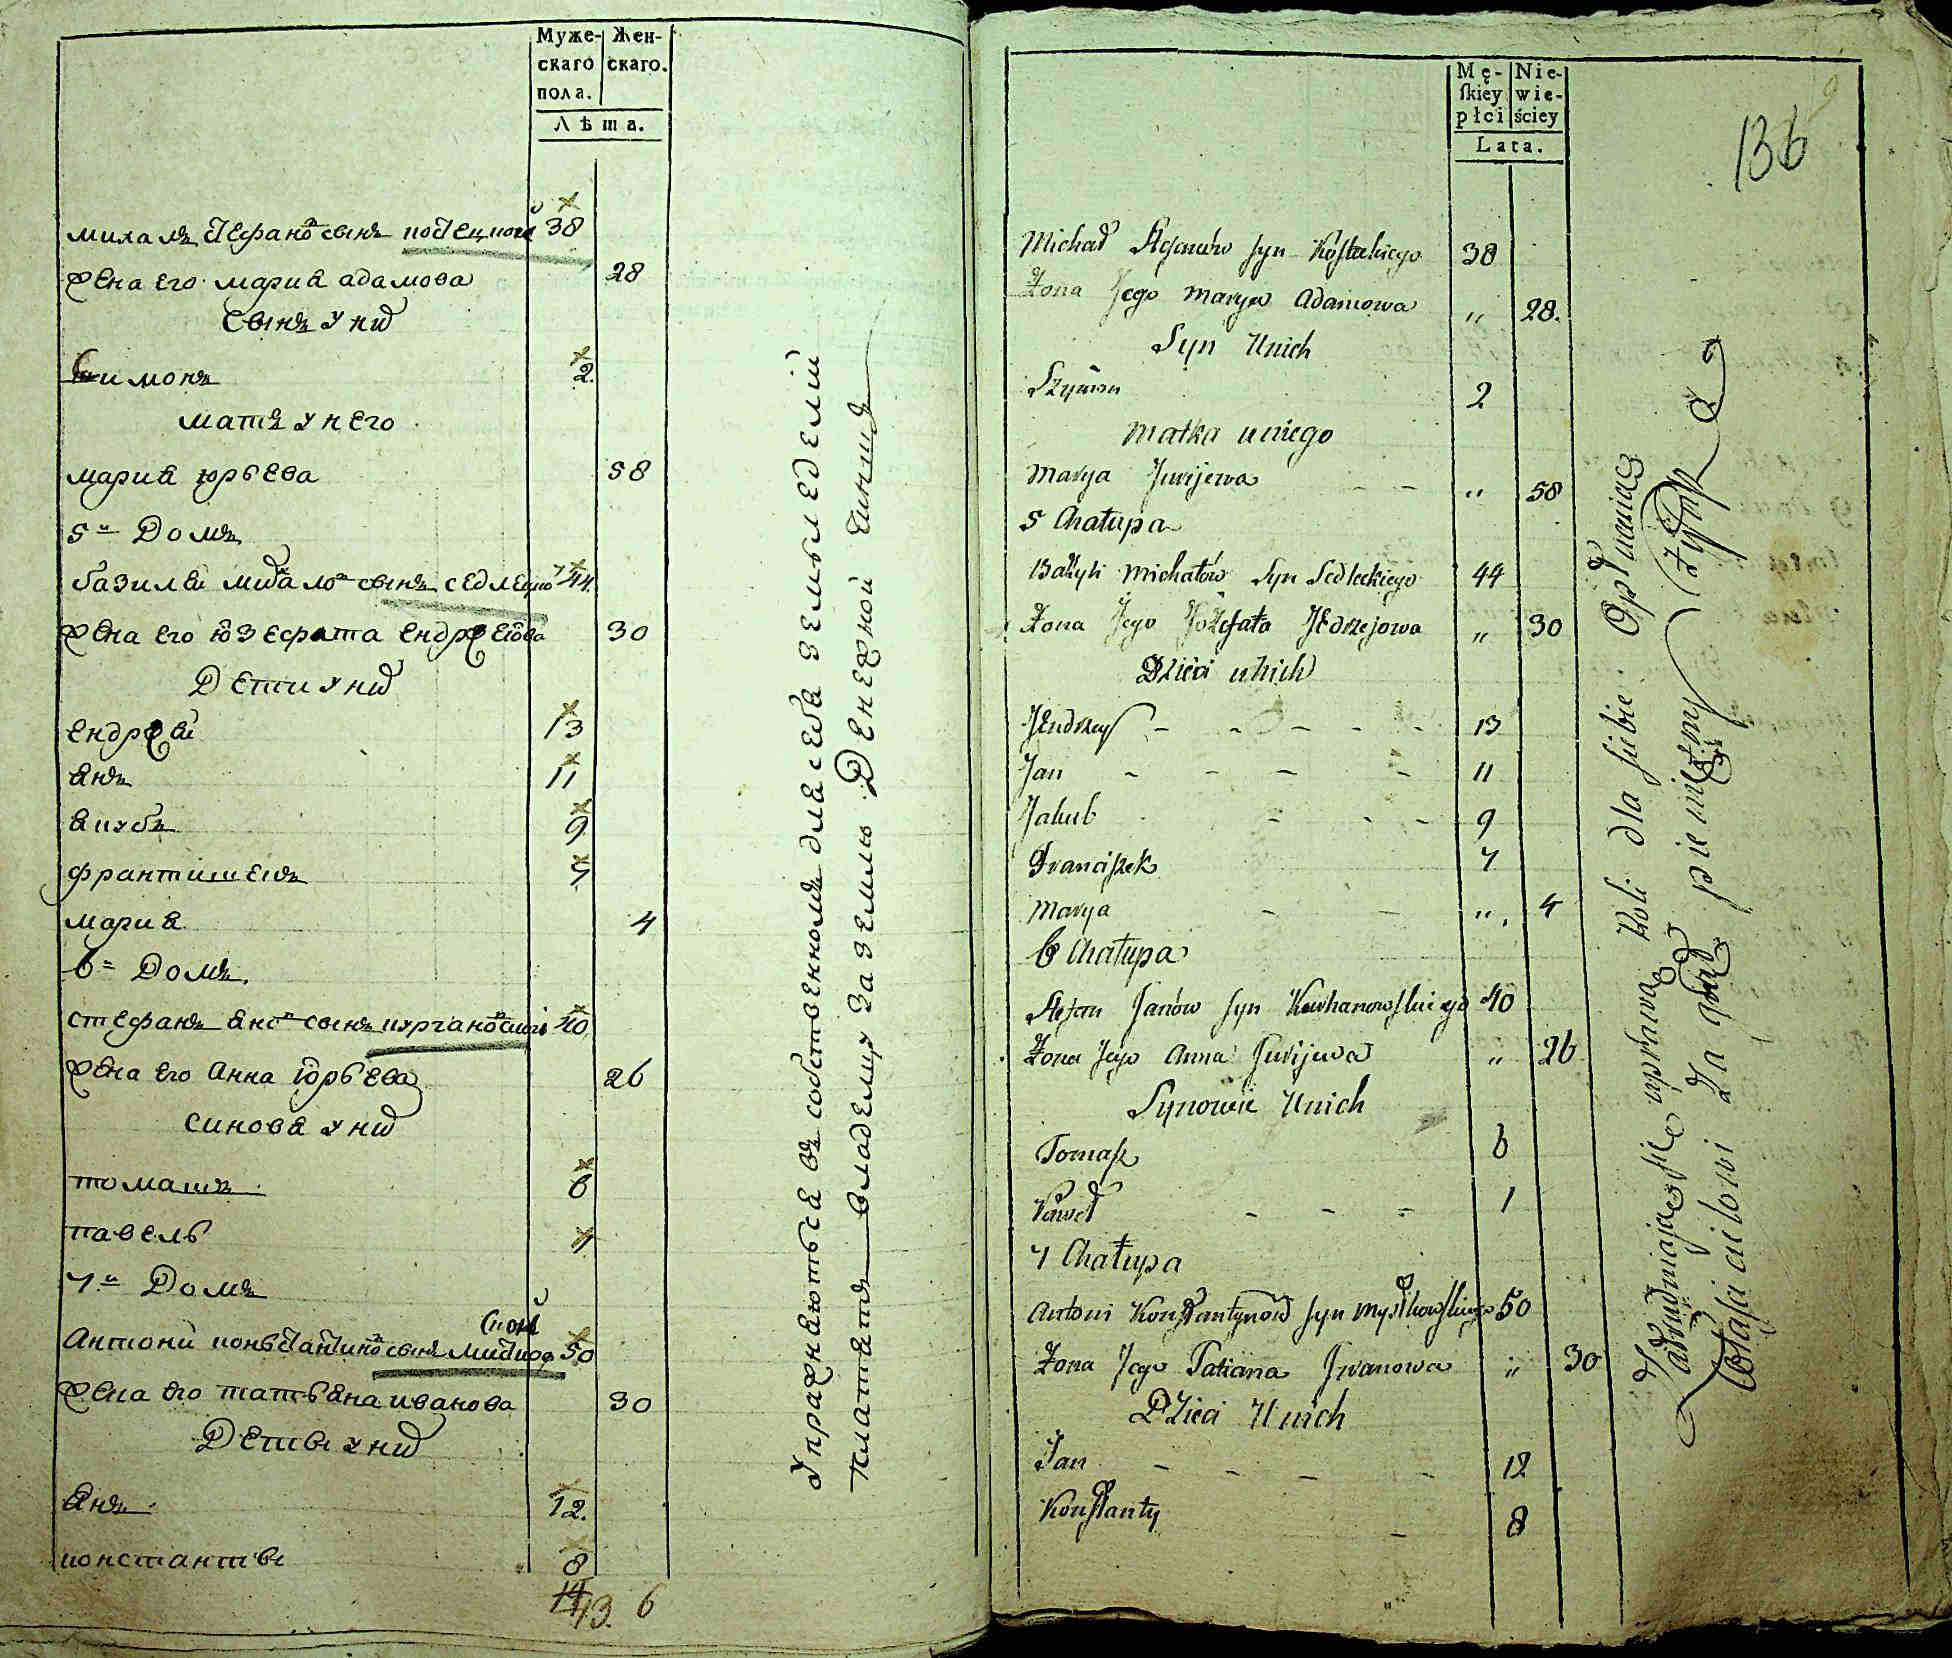 Муже-
скаго
пола.
Жен-
скаго.
Лѣта.
михалъ стефановъ сынъ костецкого 38
жена его мариа адамова 28
сынъ у них
симонъ 2.
матъ у него
мариа юрьева 58
5й Домъ
базилѣй михаловъ сынъ седлецкого 44.
жена его юзефата ендрееова 30
Дети у них
ендрей 13
янъ 11
якубъ 9
франтишекъ 7
мариа 4
6й Домъ.
стефанъ яновъ сынъ 40
жена его анна юрьева 26
синовя у них
томашъ 6
павель 1
7й Домъ
антони константиновъ сынъ 50
жена его татьяна иванова 30
Деты у них
янъ 12.
константы 8
13. 6
Упражняются въ собственномъ для себя земьледелии
платятъ владельцу за землю Денежной чиншъ
Mę-
ſkiey
płci
Nie-
wie-
ściey
Lata.
136
Michał Stefanów syn Kosteckiego 38
Żona Jego Marya Adamowa „ 28.
Syn Unich
Szymon 2
Matka uniego
Marya Jurijewa „ 58
5 Chałupa
Bazyli Michałów Syn Sedleckiego 44
Żona Jego Jozefata Jędrzejowa „ 30
Dzieci unich
Jendrzey 13
Jan 11
Jakub 9
Franciszek 7
Marya „ 4
6 Chałupa
Stefan Janów syn 40
Żona Jego Anna Jurijewa „ 26
Synowie Unich
Tomasz 6
Paweł 1
7 Chałupa
Antoni Konstantynow syn 50
Żona Jego Tatiana Jwanowa „ 30
Dzieci Unich
Jan 12
Konstanty 8
Zatrudniają się uprawą Roli dla siebie. Opłacaią
Właścicielowi za grunt pieniężny Czynsz